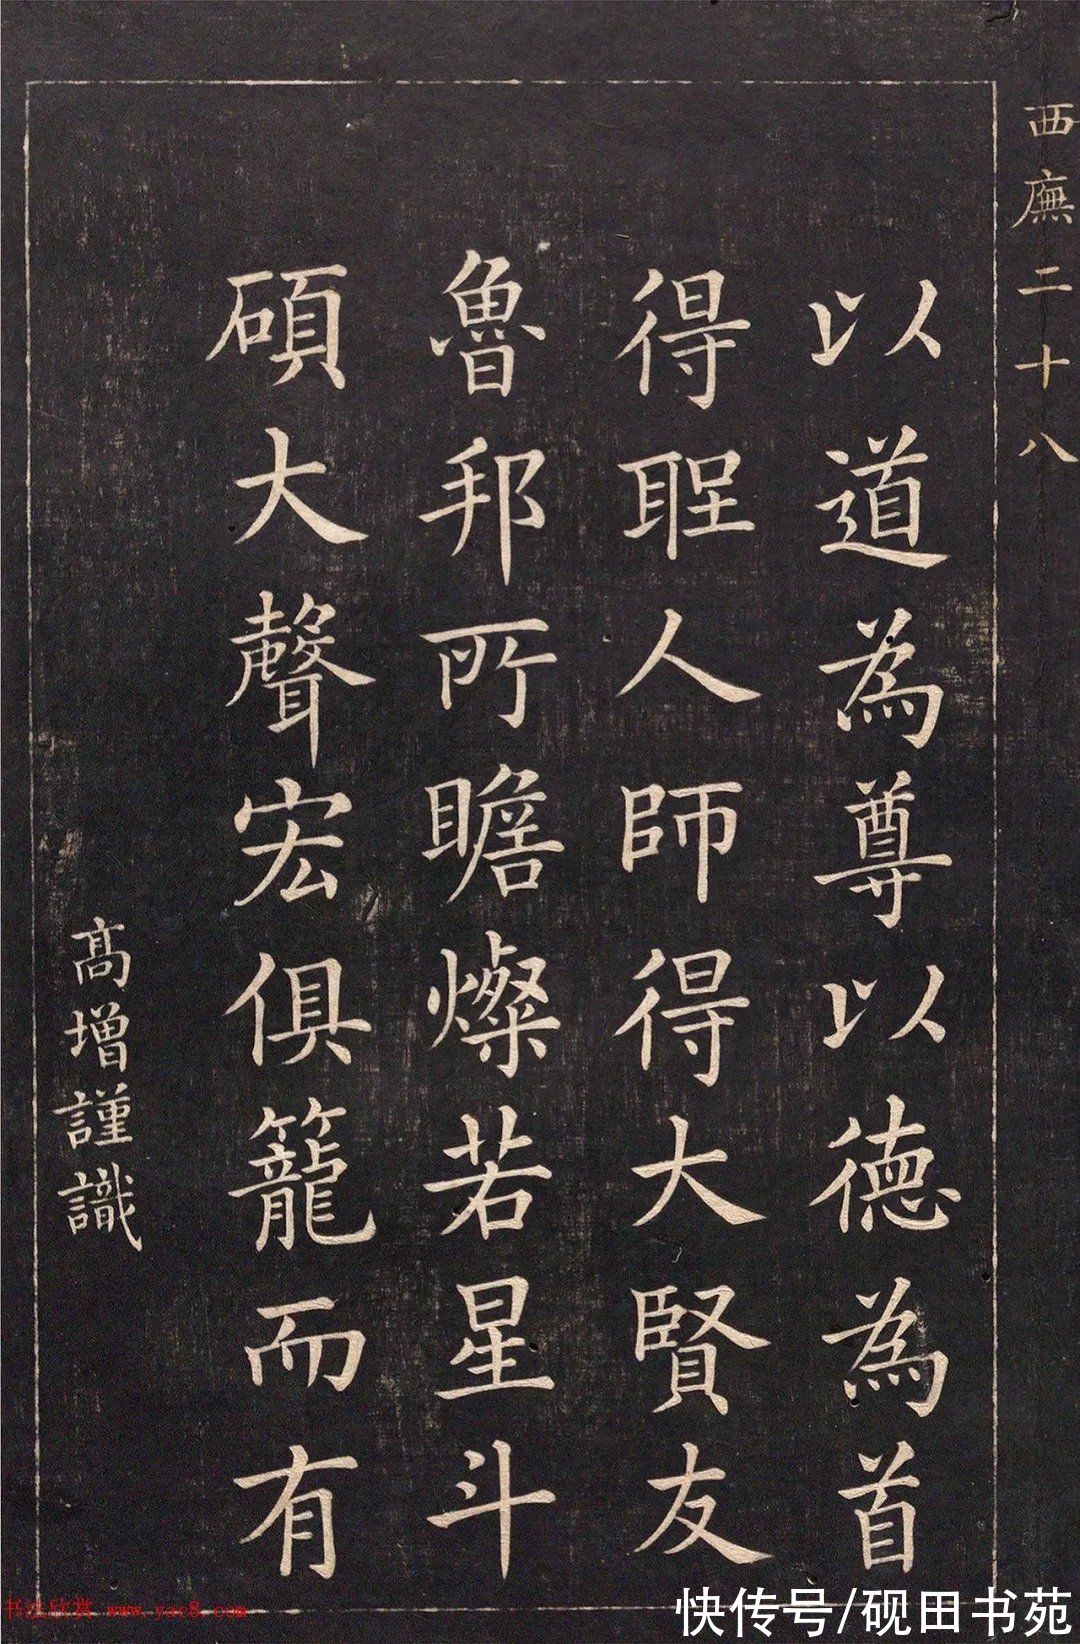 西廡二十八
以道為尊以德為首
得聖人師得大賢友
魯邦所瞻燦若星斗
碩大聲宏俱籠而有
高增謹識
书法欣赏 www.yac8.com
快传号/砚田书苑